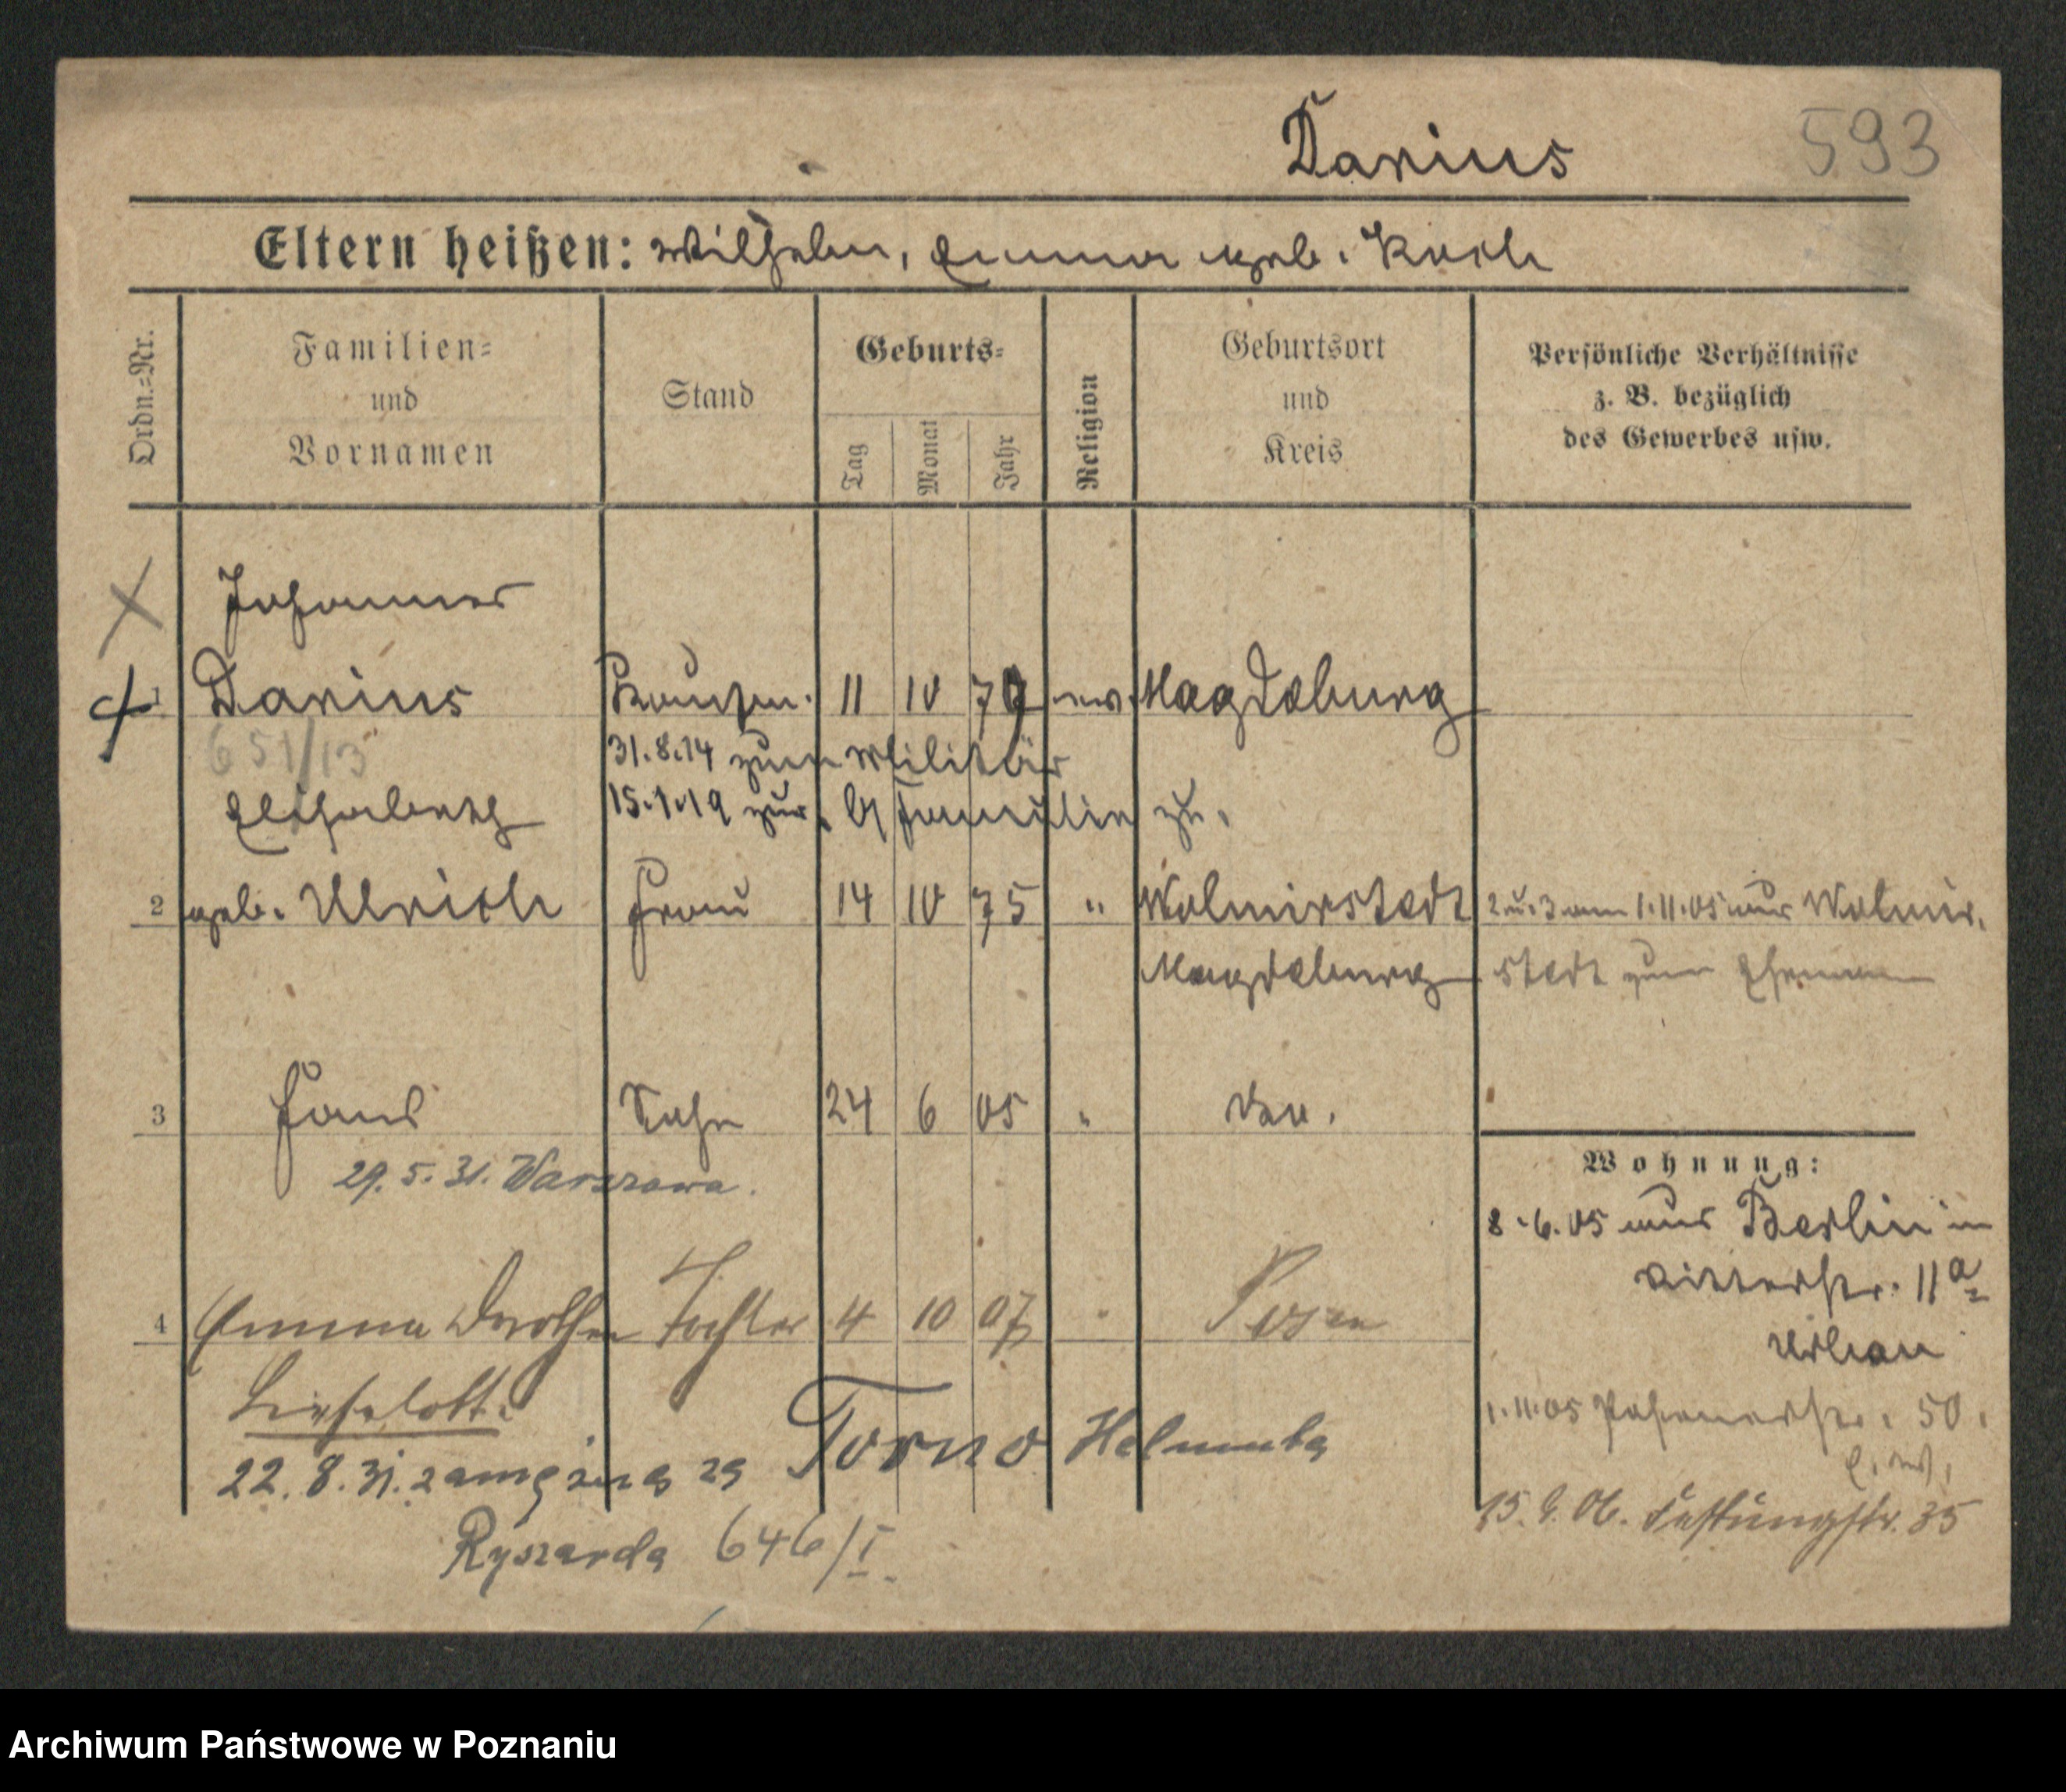 Darius 593
Eltern heißen: Wilhelm, Emma geb. Koch
Ordn.=Nr.
Familien=
und
Vornamen
Stand
Geburts=
Tag
Monat
Jahr
Religion
Geburtsort
und
Kreis
Persönliche Verhältnisse
z. B. bezüglich
des Gewerbes usw.
Johannes
1 Darius 11 10 70 ev. Magdeburg
651/13 31.8.14 zum Militär
Elisabeth 15.1.19 zur Familie zu.
2 geb. Ulrich Frau 14 10 75 " Wolmirstedt 2 u. 3 am 1.11.05 aus Wolmir.
Magdeburg stedt zum Ehemann
3 Hans Sohn 24 6 05 " das.
29.5.31. Warszawa.
Wohnung:
8.6.05 aus Berlin in
Ritterstr. 11a
4 Emma Dorothea Tochter 4 10 07 " Posen
Urban
Lieselott.
1.11.05 Posenerstr. 50.
22.8.31. zamężna za Torno Helmuta
15.9.06. Festungstr. 35
Ryszarda 646/I.
Archiwum Państwowe w Poznaniu